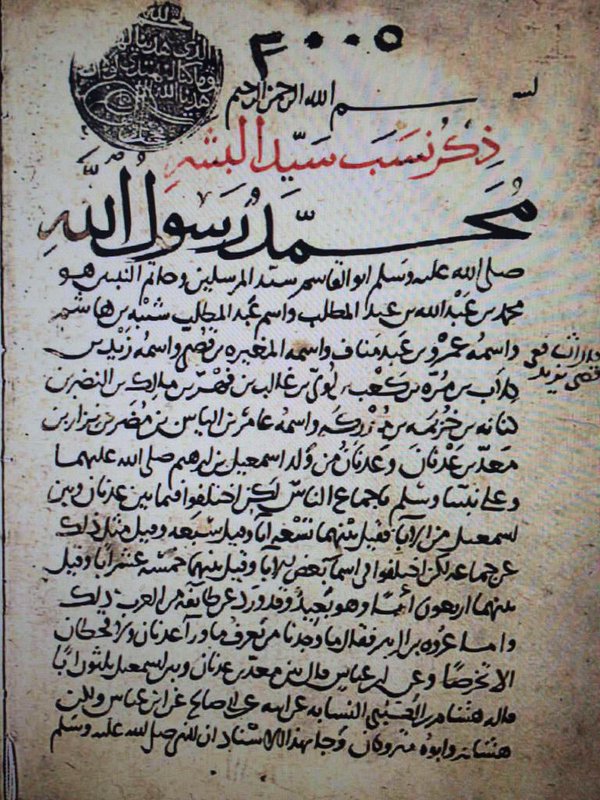 ٣٠٠٥
بسم الله الرحمن الرحيم
ذكر نسب سيد البشر
محمد رسول الله
صلى الله عليه وسلم ابو القاسم سيد المرسلين وخاتم النبيين هو
محمد بن عبد الله بن عبد المطلب واسم عبد المطلب شيبه بن هاشم
واسمه عمرو بن عبد مناف واسمه المغيره بن قصي واسمه زيد بن
كلاب بن مره بن كعب بن لوي بن غالب بن فهر بن مالك بن النضر بن
كنانه بن خزيمه بن مدركه واسمه عامر بن الياس بن مضر بن نزار بن
معد بن عدنان وعدنان من ولد اسمعيل بن ابرهيم صلى الله عليهما
وعلى نبينا وسلم باجماع الناس لكن اختلفوا فيما بين عدنان وبين
اسمعيل من الابا فقيل بينهما تسعه ابا وقيل سبعه وقيل مثل ذلك
عن جماعه لكن اختلفوا في اسما بعض الابا وقيل بينهما خمسه عشر ابا وقيل
بينهما اربعون ابا وهو بعيد وقد ورد عن طايفه من العرب ذلك
واما عروه بن الزبير فقال ما وجدنا من يعرف ما ورآ عدنان ولا قحطان
الا تخرصا وعن ابن عباس قال بين معد بن عدنان وبين اسمعيل ثلثون ابا
قاله هشام بن الكلبي النسابه عن ابيه عن ابي صالح عن ابن عباس ولكن
هشام وابوه متروكان وجا بهذا الاسناد ان النبي صلى الله عليه وسلم
قال الشافعي
قصي يزيد